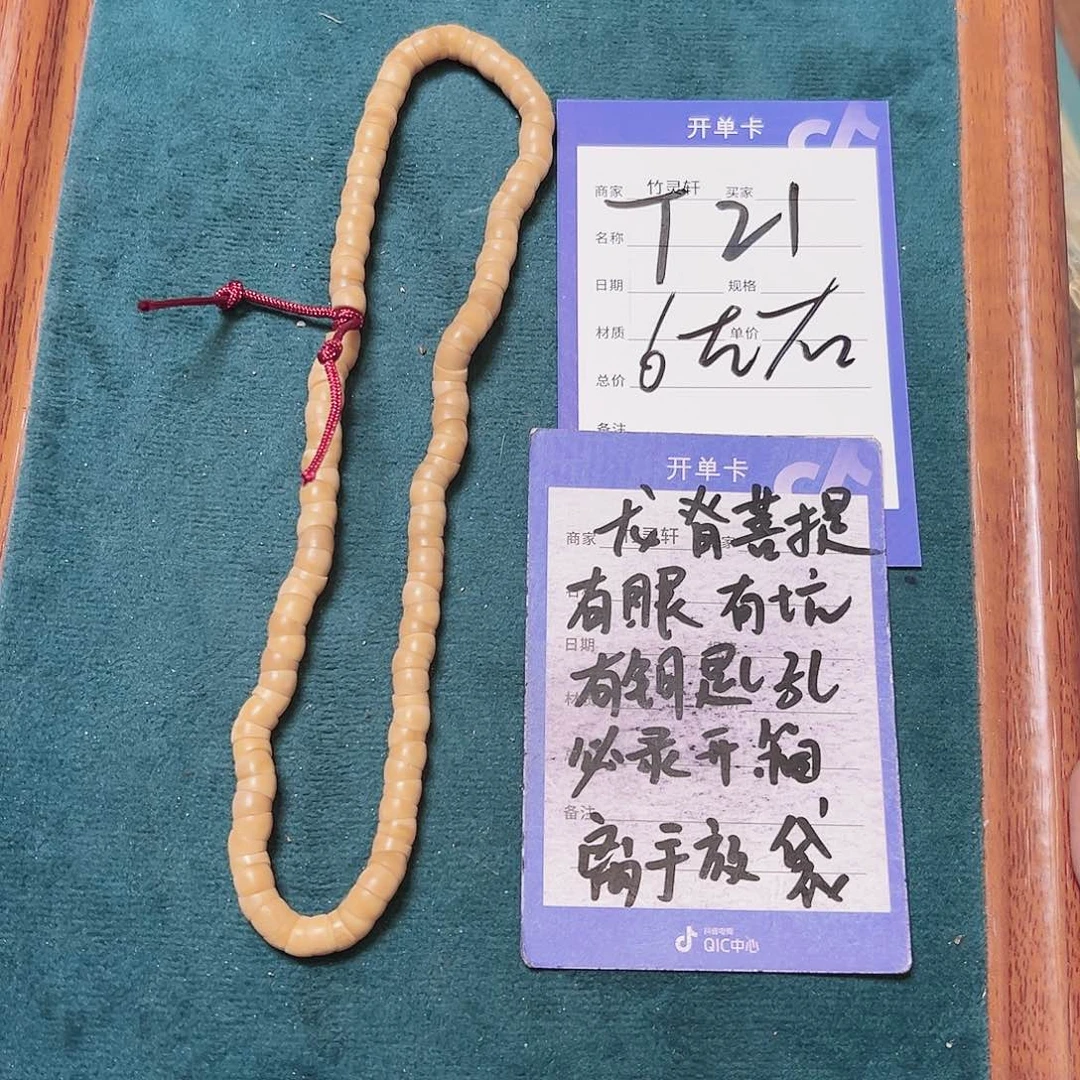 开单卡
商家 竹灵轩 买家
T21
名称
日期 规格
6左右
材质 单价
总价
备注
开单卡
商家 灵轩 家
龙脊菩提
有眼 有坑
日期
有钥匙孔
必录开箱
备注
离手放袋
抖音电商
QIC中心